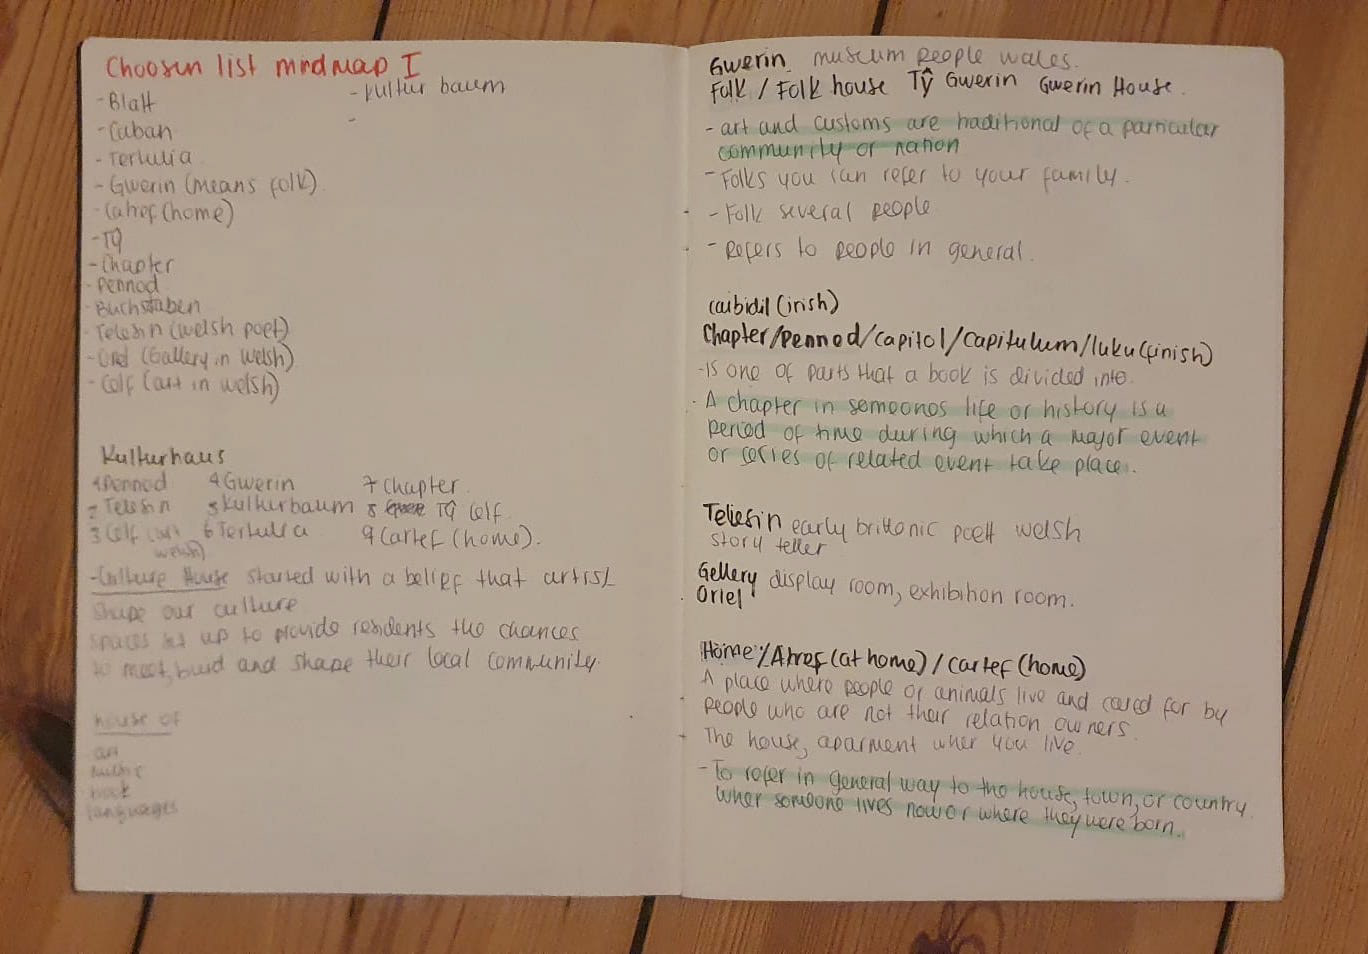 Choosen list mindmap I
- Blatt
- Cuban
- Tertulia
- Gwerin (means folk)
- Catref (home)
- Tŷ
- Chapter
- Pennod
- Buchstaben
- Telesin (welsh poet)
- (Gallery in welsh)
- Celf (art in welsh)
- Kultur baum
-
Kulturhaus
1 Pennod 4 Gwerin 7 Chapter
2 Telesin 5 Kulturbaum 8 Tŷ Celf
3 Celf (art 6 Tertulia 9 Cartef (home).
welsh)
- Culture House started with a belief that artist
shape our culture
spaces set up to provide residents the chances
to meet, build and shape their local community.
house of
- art
- music
- book
languages
Gwerin museum people wales.
Folk / Folk house Tŷ Gwerin Gwerin House.
- art and customs are traditional of a particular
community or nation
- Folks you can refer to your family.
- Folk several people
- Refers to people in general.
caibidil (irish)
Chapter/Pennod/capitol/capitulum/luku (finish)
- Is one of parts that a book is divided into.
- A chapter in someonos life or history is a
period of time during which a major event
or series of related event take place.
Teliesin early brittonic poett welsh
story teller
Gellery display room, exhibition room.
Oriel
Home/Atref (at home) / Cartef (home)
A place where people or animals live and cared for by
people who are not their relation owners.
- The house, aparment wher you live.
- To refer in general way to the house, town, or country
wher someone lives now or where they were born.